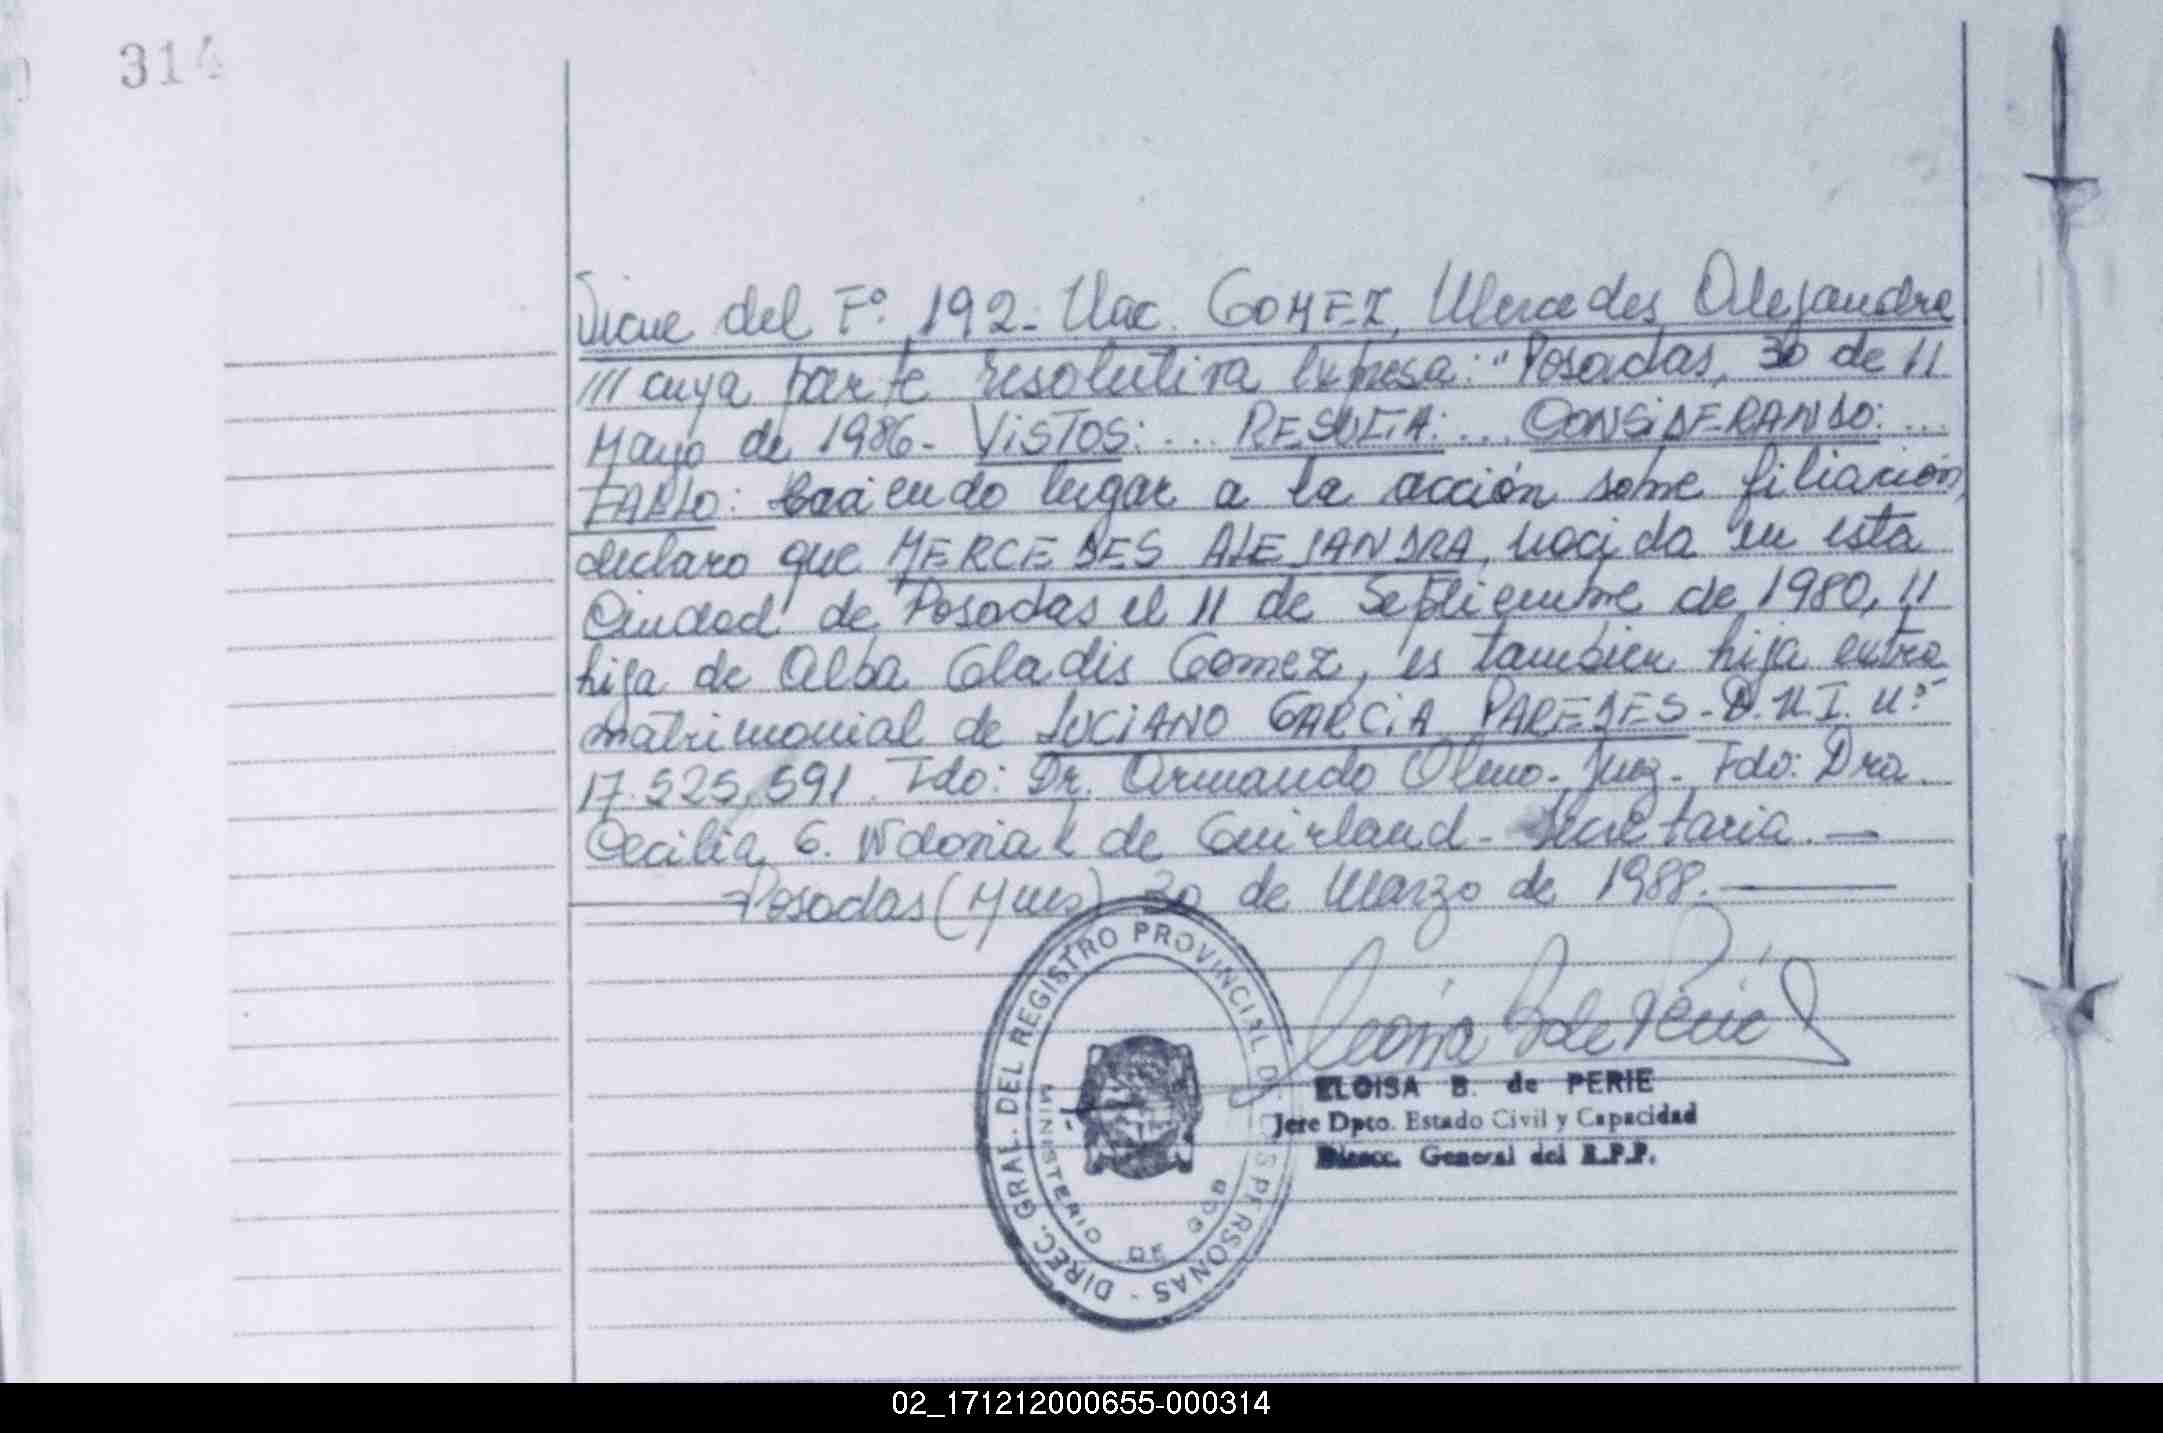 314
Viene del Fº. 192. Nac. GOMEZ, Mercedes Alejandra
/// cuya parte resolutiva expresa: "Posadas, 30 de //
Mayo de 1986. ViSTOS: ... RESULTA: ... CONSiDERANDO: ...
FALLO: Haciendo lugar a la acción sobre filiación,
declaro que MERCEDES ALEJANDRA, nacida en esta
Ciudad de Posadas el 11 de Septiembre de 1980, //
hija de Alba Gladis Gomez, es tambien hija extra
matrimonial de LUCiANO GARCiA PAREDES - D.N.I. Nº-
17.525,591. Fdo: Dr. Armando Olmo. Juez. Fdo: Dra.
Cecilia G. de Guirland - Secretaria. —
Posadas (Mnes) 30 de Marzo de 1988.
DIREC. GRAL. DEL REGISTRO PROVINCIAL DE LAS PERSONAS -
MINISTERIO DE GOB
ELOISA B. de PERIE
Jefe Dpto. Estado Civil y Capacidad
Direcc. General del R.P.P.
02_171212000655-000314